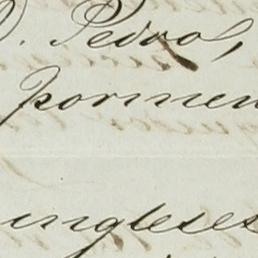 D. Pedro,
pormen
ingleses